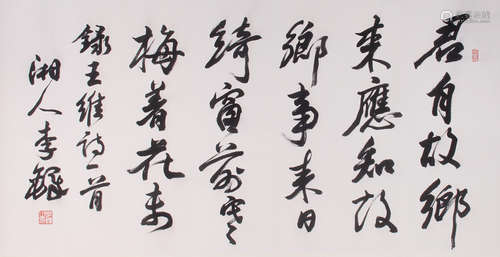 君自故鄉
来應知故
鄉事来日
綺窗前寒
梅着花未
錄王維诗一首
湘人李鐸